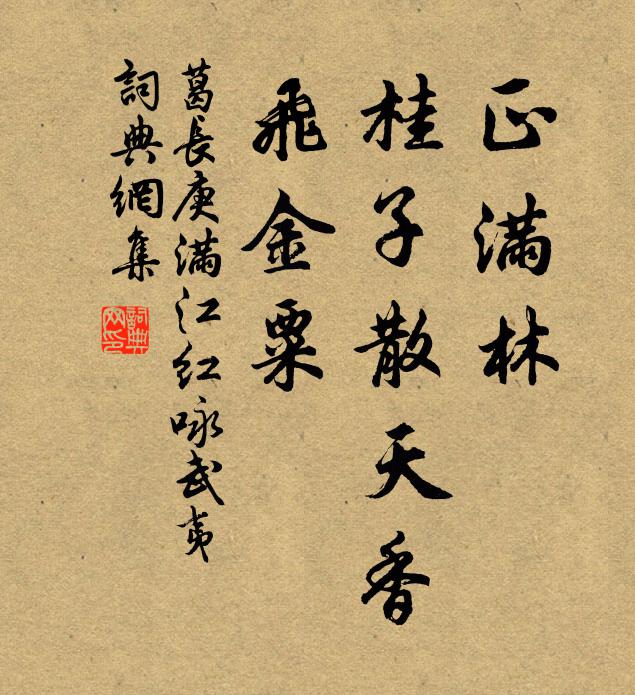 正滿林
桂子散天香
飛金粟
葛長庚滿江紅咏武夷
詞典網集
詞典
网印